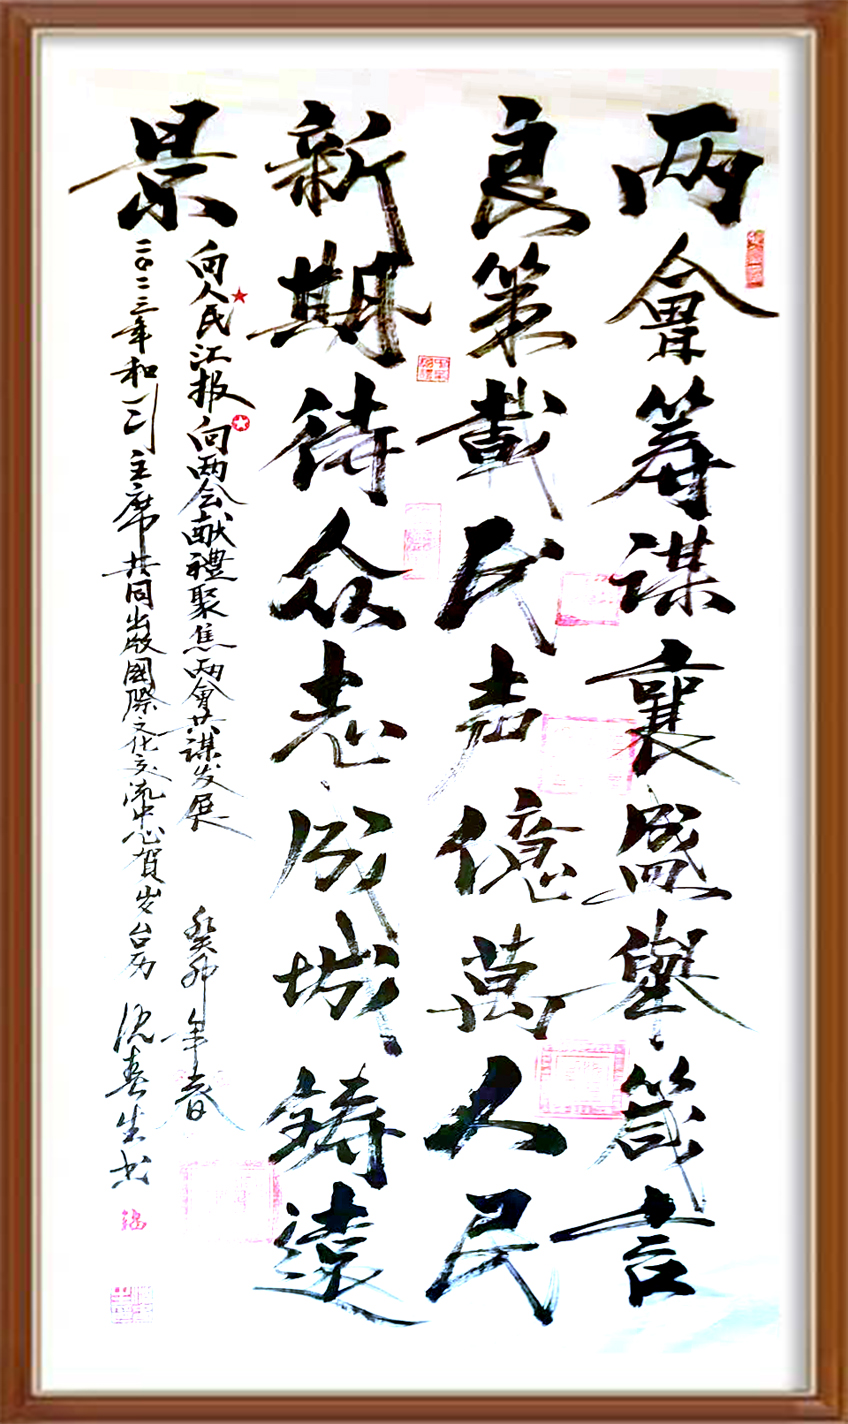 两會筹谋襄盛舉箴言
良策載民声億萬人民
新期待众志成城铸遠
景
向人民江报向两会献禮聚焦两會共谋发展
癸卯年春
二〇二三年和主席共同出版國際文化交流中心賀岁台历
沈春生书